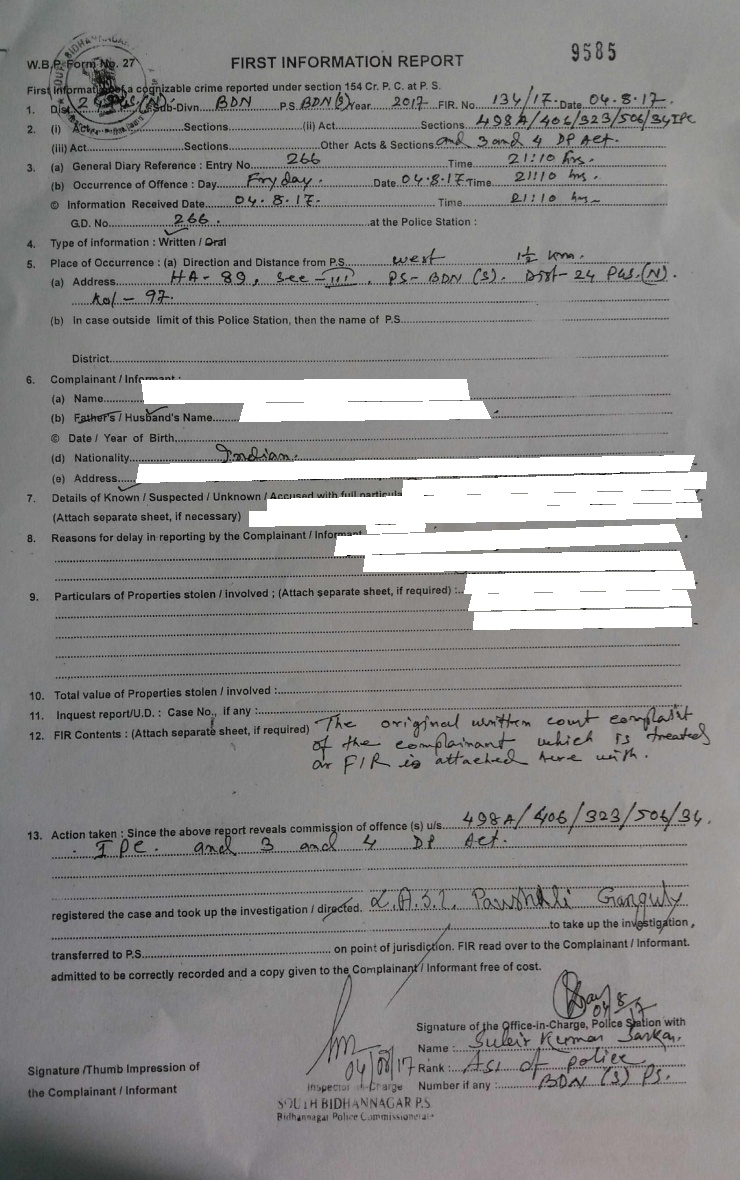 9585
W.B.P. Form No. 27
FIRST INFORMATION REPORT
First information of a cognizable crime reported under section 154 Cr. P. C. at P. S.
1. Dist. 24 PGS.(N). Sub-Divn. BDN P.S. BDN(S) Year 2017 FIR. No. 134/17. Date 04.8.17.
2. (i) Act Sections (ii) Act Sections 498A/406/323/506/34 IPC
(iii) Act Sections Other Acts & Sections and 3 and 4 DP Act.
3. (a) General Diary Reference : Entry No. 266 Time 21:10 hrs.
(b) Occurrence of Offence : Day Fryday. Date 04.8.17. Time 21:10 hrs.
© Information Received Date 04.8.17. Time 21:10 hrs.
G.D. No. 266. at the Police Station :
4. Type of information : Written / Oral
5. Place of Occurrence : (a) Direction and Distance from P.S. west 1½ km.
(a) Address HA-89, Sec-III, PS- BDN (S). Dist- 24 PGS.(N).
Kol-97.
(b) In case outside limit of this Police Station, then the name of P.S.
District
6. Complainant / Informant :
(a) Name
(b) Father's / Husband's Name
© Date / Year of Birth
(d) Nationality Indian.
(e) Address
7. Details of Known / Suspected / Unknown / Accused with full
(Attach separate sheet, if necessary)
8. Reasons for delay in reporting by the Complainant / Informant
9. Particulars of Properties stolen / involved ; (Attach separate sheet, if required) :
10. Total value of Properties stolen / involved :
11. Inquest report/U.D. : Case No., if any :
12. FIR Contents : (Attach separate sheet, if required) The original written court complaint
of the complainant which is treated
as FIR is attached here with.
13. Action taken : Since the above report reveals commission of offence (s) u/s 498A/406/323/506/34.
IPC. and 3 and 4 DP Act.
registered the case and took up the investigation / directed. Ganguly
to take up the investigation,
transferred to P.S. on point of jurisdiction. FIR read over to the Complainant / Informant.
admitted to be correctly recorded and a copy given to the Complainant / Informant free of cost.
04/8/17
Signature of the Office-in-Charge, Police Station with
Name : Subir Kumar Sarkar.
04/08/17 Rank : ASI of police
Signature /Thumb Impression of
the Complainant / Informant
Inspector in-Charge Number if any : BDN (S) PS.
SOUTH BIDHANNAGAR P.S
Bidhannagar Police Commissionerate